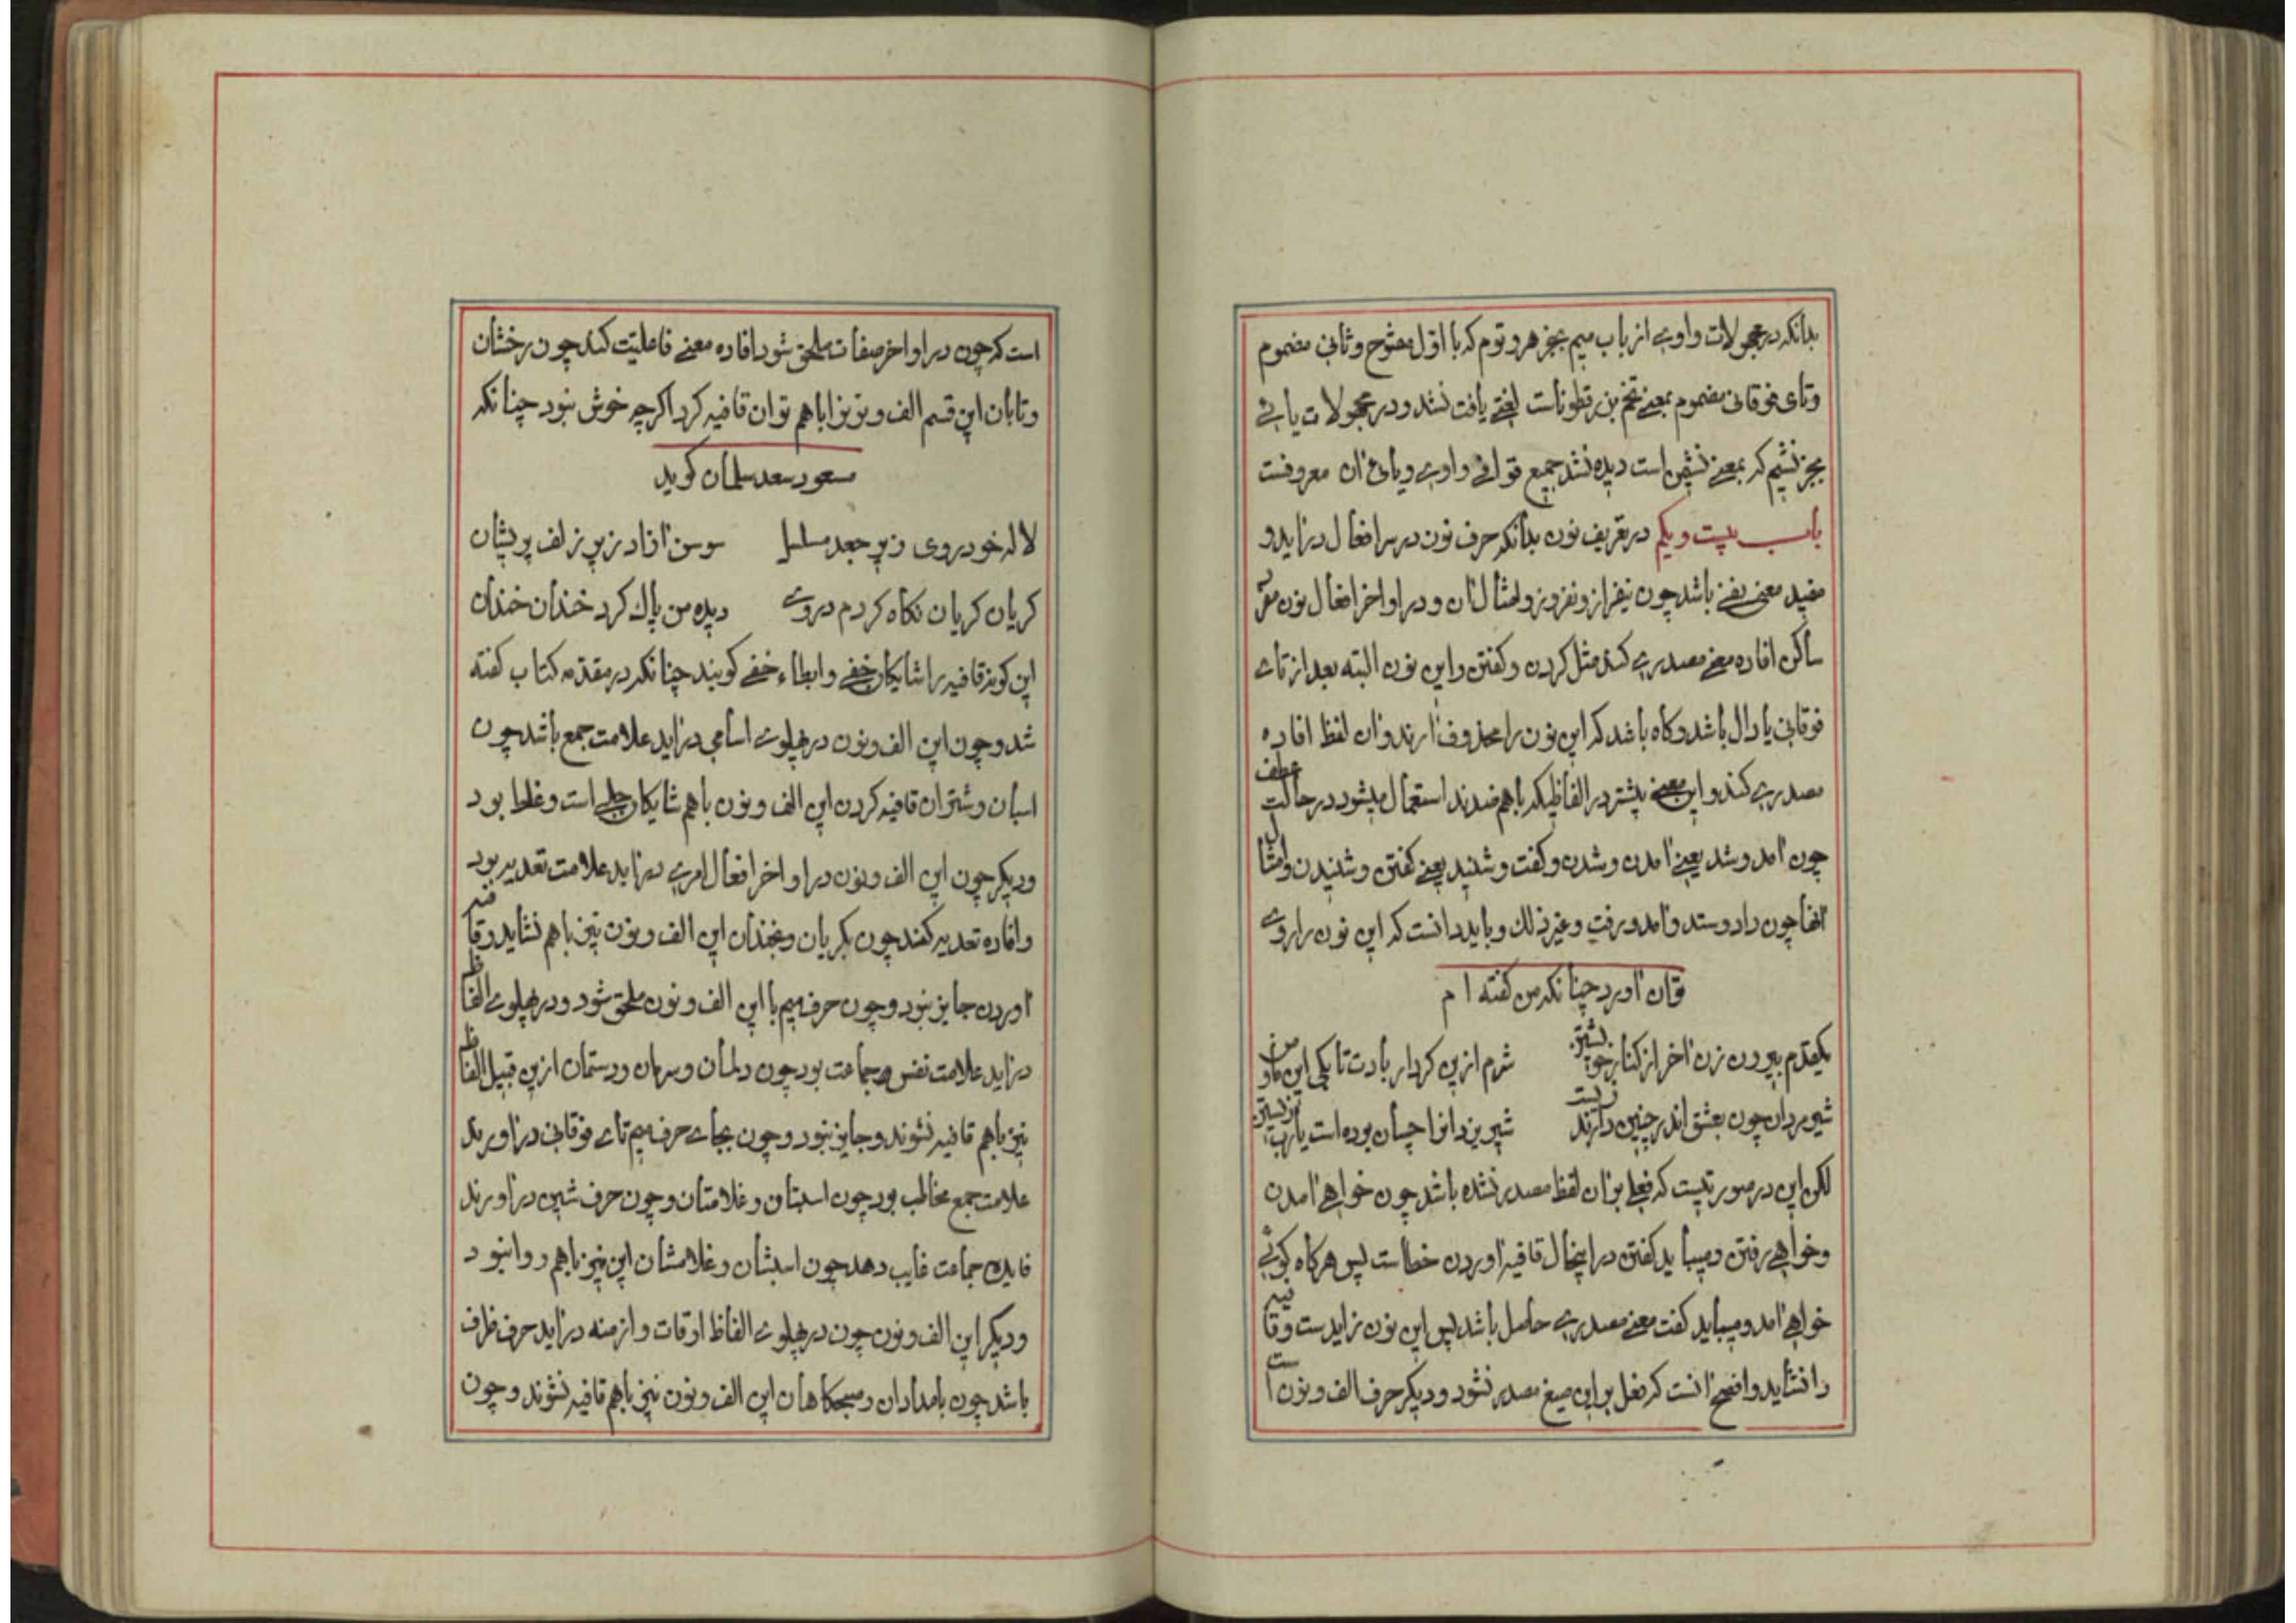 بدانکه در مجهولات واوی از باب میم بجز هر و توم که با اول مفتوح و ثانی مضموم
وتای فوقانی مضموم بمعنی تخم بزرقطوناست لغتی یافت نشد و در مجهولات یائی
بجز نشیم که بمعنی نشیمن است دیده نشد جمیع قوافی واوی و یائی ان معروفست
باب بیست ویکم در تعریف نون بدانکه حرف نون در سر افعال درآید و
مفید معنی نفی باشد چون نیفراز و نفروز و امثال ان و در اواخر افعال نون
ساکن افاده معنی مصدری کند مثل کردن و کفتن و این نون البته بعد از تای
فوقانی یا دال باشد و کاه باشد که این نون را محذوف آرند و ان لفظ افاده
مصدری کند و این معنی بیشتر در الفاظیکه باهم ضدند استعمال میشود در حالت عطف
چون آمد و شد یعنی آمدن و شدن و کفت و شنید یعنی کفتن و شنیدن و امثال
انها چون داد و ستد و آمد و رفت و غیر ذلک و باید دانست که این نون را روی
توان آورد چنانکه من کفته ام
یکقدم بیرون نزن آخر از کنار خویشتن شرم ازین کردار بادت تا بکی این ما و من
شیرمردان چون بعشق اندر چنین دارند زیست شیر یزدانرا چسان بوده است یا رب زیستن
لکن این در صورتیست که فعلی بر ان لفظ مصدر نشده باشد چون خواهی آمدن
وخواهی رفتن و میباید کفتن در اینحال قافیه آوردن خطاست پس هرکاه کوئی
خواهی آمد و میباید کفت معنی مصدری حاصل باشد پس این نون زایدست و قافیه
را نشاید و افصح آنست که فعل بر این صیغ مصدر نشود و دیکر حرف الف و نون است
است که چون در اواخر صفات ملحق شود افاده معنی فاعلیت کند چون رخشان
وتابان این قسم الف و نونرا باهم توان قافیه کرد اکرچه خوش نبود چنانکه
مسعود سعد سلمان کوید
لاله خودروی زیر جعد مسلسل سوسن آزاد زیر زلف پریشان
کریان کریان نکاه کردم در وی دیده من پاک کرد خندان خندان
این کونه قافیه را شایکان خفی و ایطاء خفی کویند چنانکه در مقدمه کتاب کفته
شد و چون این الف و نون در پهلوی اسامی درآید علامت جمع باشد چون
اسبان و شتران قافیه کردن این الف و نون باهم شایکان جلی است و غلط بود
ودیکر چون این الف و نون در اواخر افعال امری درآید علامت تعدیه بود
وافاده تعدیه کند چون بکریان و بخندان این الف و نون نیز باهم نشاید و قافیه
آوردن جایز نبود و چون حرف میم با این الف و نون ملحق شود و در پهلوی الفاظ
درآید علامت نفس و جماعت بود چون دلمان و سرمان و دستمان ازین قبیل الفاظ
نیز باهم قافیه نشوند و جایز نبود و چون بجای حرف میم تای فوقانی درآورند
علامت جمع مخاطب بود چون اسبتان و غلامتان و چون حرف شین درآورند
فایده جماعت غایب دهد چون اسبشان و غلامشان این نیز باهم روا نبود
ودیکر این الف و نون چون در پهلوی الفاظ اوقات و ازمنه درآید حرف ظرف
باشد چون بامدادان و صبحکاهان این الف و نون نیز باهم قافیه نشوند و چون